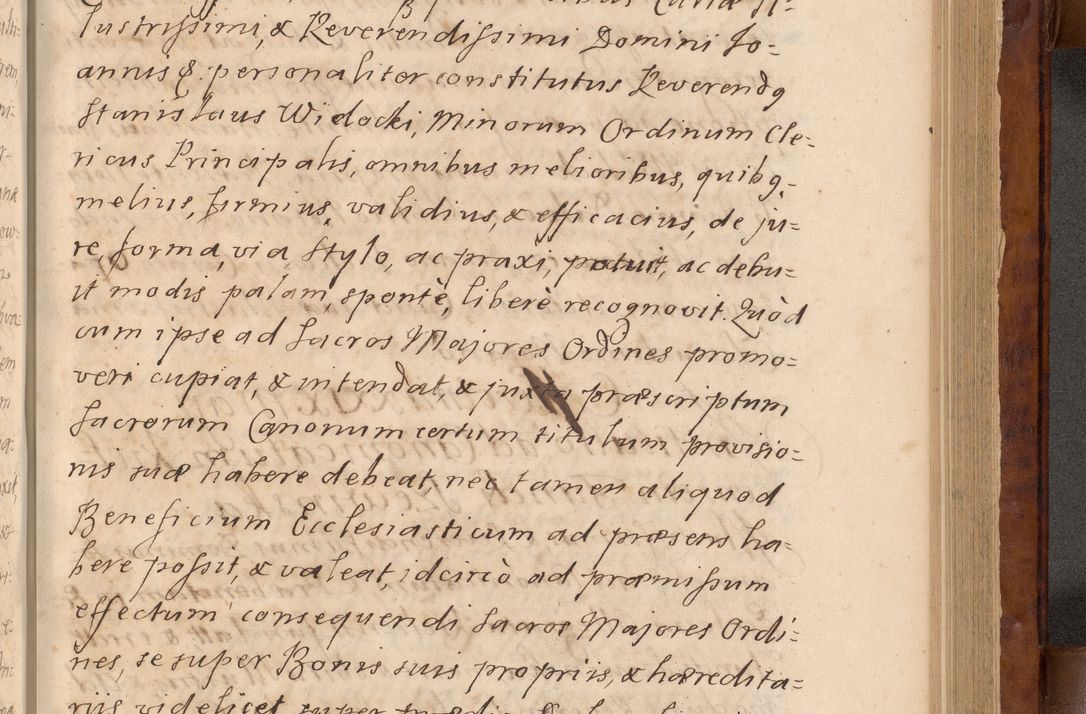 lustrissimi, & Reverendissimi Domini Jo=
annis &. personaliter constitutus Reverendq
Stanislaus Widocki, Minorum Ordinum Cle=
ricus Principalis, omnibus melioribus, quibq=
melius, firmius, validius, & efficacius, de ju=
re, forma, via, stylo, ac praxi, potuit, ac debu=
it modis palam, spontè, liberè recognovit. Quòd
cum ipse ad Sacros Majores Ordines promo=
veri cupiat, & intendat, & juxta præscriptum
Sacrorum Canonum certum titulum provisio=
nis suæ habere debeat, nec tamen aliquod
Beneficium Ecclesiasticum ad præsens ha=
bere possit, & valeat, idcircò ad præmissum
effectum consequendi Sacros Majores Ordi=
nes, se super Bonis suis propriis, & hæredita=
riis videlicet super